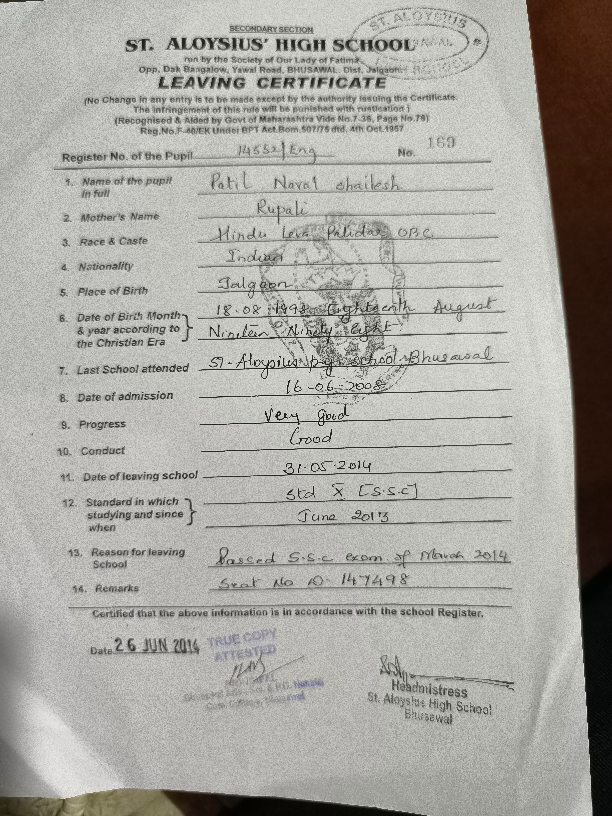 SECONDARY SECTION
ST. ALOYSIUS' HIGH SCHOOL
ST. ALOYSIUS
run by the Society of Our Lady of Fatima
Opp. Dak Bangalow, Yawal Road, BHUSAWAL. Dist. Jalgaon.
LEAVING CERTIFICATE
(No Change in any entry is to be made except by the authority issuing the Certificate.
The infringement of this rule will be punished with rustication)
(Recognised & Aided by Govt of Maharashtra Vide No.7-36, Page No.78)
Reg.No.F-40/EK Under BPT Act.Bom.507/75 dtd. 4th Oct.1957
Register No. of the Pupil 14552/Eng No. 169
1. Name of the pupil in full Patil Naval shailesh
2. Mother's Name Rupali
3. Race & Caste Hindu Leva Patidar OBC
4. Nationality Indian
5. Place of Birth Jalgaon
6. Date of Birth Month 18.08.1998 Eighteenth August
& year according to Ninteen Ninety Eight
the Christian Era
7. Last School attended St. Aloysius school Bhusawal
8. Date of admission 16-06-2008
9. Progress Very Good
10. Conduct Good
11. Date of leaving school 31.05.2014
12. Standard in which Std X [S.S.C]
studying and since June 2013
when
13. Reason for leaving School Passed S.S.C exam of March 2014
14. Remarks Seat No D-147498
Certified that the above information is in accordance with the school Register.
Date 26 JUN 2014
TRUE COPY
ATTESTED
Headmistress
St. Aloysius High School
Bhusawal